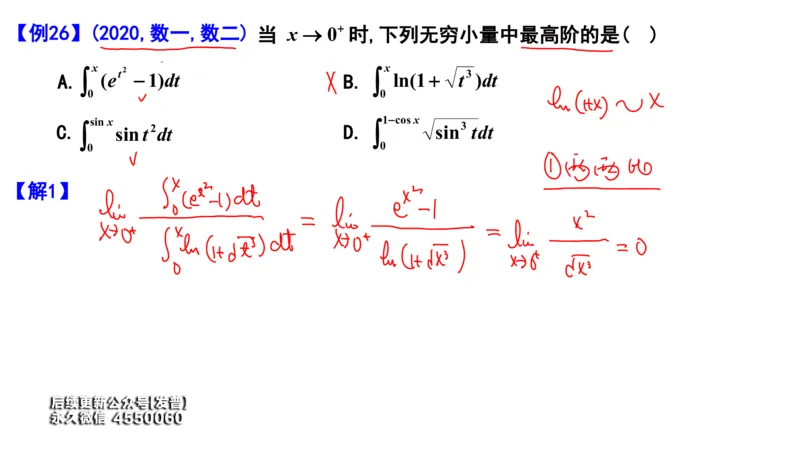 【例26】(2020,数一,数二) 当 x → 0⁺ 时,下列无穷小量中最高阶的是( )
A. ∫₀ˣ (e^{t²} − 1)dt
X B. ∫₀ˣ ln(1 + √t³)dt
ln(1+x) ~ x
C. ∫₀^{sin x} sin t² dt
D. ∫₀^{1−cos x} √sin³ t dt
【解1】
lim_{x→0⁺} ∫₀ˣ(e^{t²}−1)dt / ∫₀ˣ ln(1+√t³)dt = lim_{x→0⁺} (e^{x²}−1) / ln(1+√x³) = lim_{x→0⁺} x² / √x³ = 0
后续更新公众号[发普]
永久微信 4550060